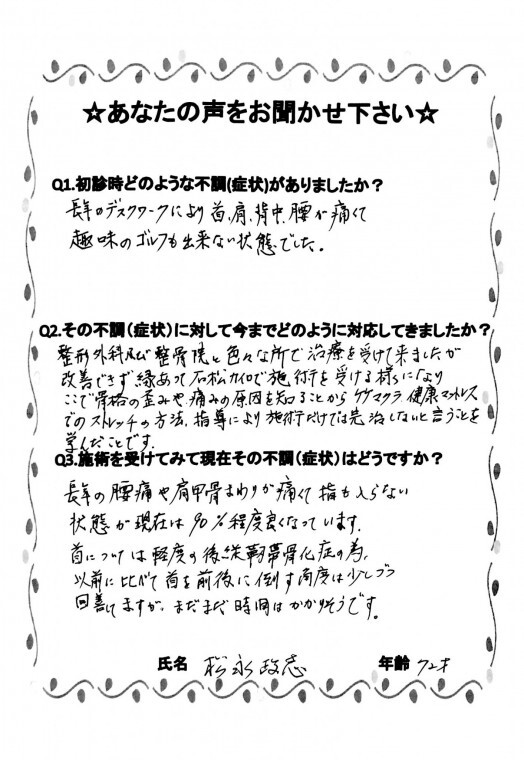 ☆あなたの声をお聞かせ下さい☆
Q1.初診時どのような不調(症状)がありましたか？
長年のデスクワークにより首、肩、背中、腰が痛くて
趣味のゴルフも出来ない状態でした。
Q2.その不調（症状）に対して今までどのように対応してきましたか？
整形外科及び整骨院と色々な所で治療を受けて来ましたが
改善できず縁あって石松カイロで施術を受ける様になり
ここで骨格の歪みや痛みの原因を知ることから マクラ、健康マットレス
でのストレッチの方法、指導により施術だけでは完治しないと言うことを
学んだことです。
Q3.施術を受けてみて現在その不調（症状）はどうですか？
長年の腰痛や肩甲骨まわりが痛くて指も入らない
状態が現在は90％程度良くなっています。
首については軽度の後縦靭帯骨化症の為、
以前に比べて首を前後に倒す角度は少しづつ
回善してますが、まだまだ時間はかかりそうです。
氏名 松永政志
年齢 72才